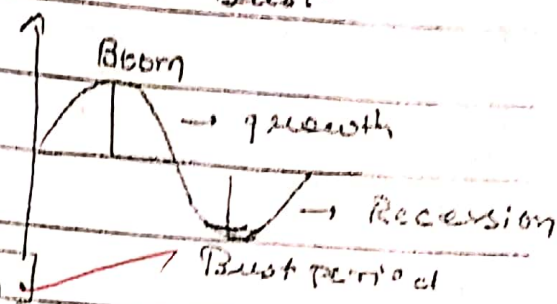 Boom
→ growth
→ Recession
Bust period